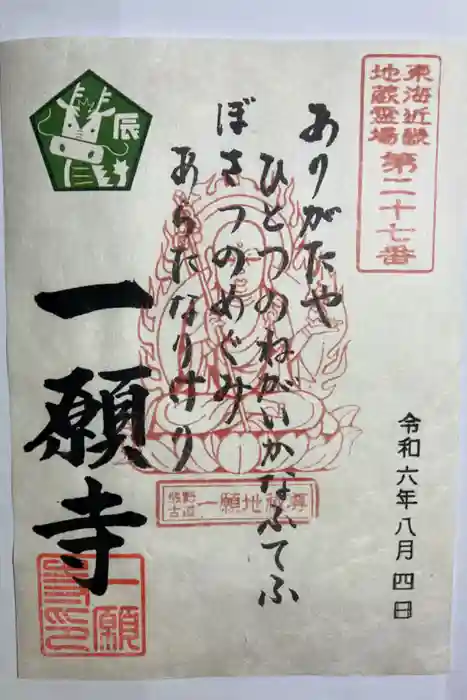 東海近畿
地蔵霊場
第二十七番
ありがたや
ひとつのねがいかなふてふ
ぼさつのめぐみ
あらたなりけり
辰
一願寺
熊野
古道
一願地蔵尊
一願
寺印
令和六年八月四日